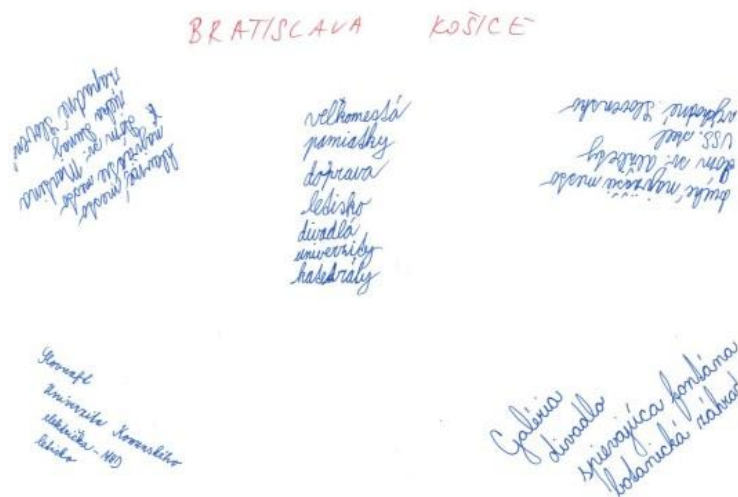 BRATISLAVA KOŠICE
hlavné mesto
najväčšie mesto
Dóm sv. Martina
rieka Dunaj
západné Sloven
veľkomestá
pamiatky
doprava
letisko
divadlá
univerzity
katedrály
druhé najväčšie mesto
Dóm sv. Alžbety
VSS. ocel
východné Slovensko
Slovnaft
Univerzita Komenského
električka - MHD
letisko
Galéria
divadlo
spievajúca fontána
botanická záhrad